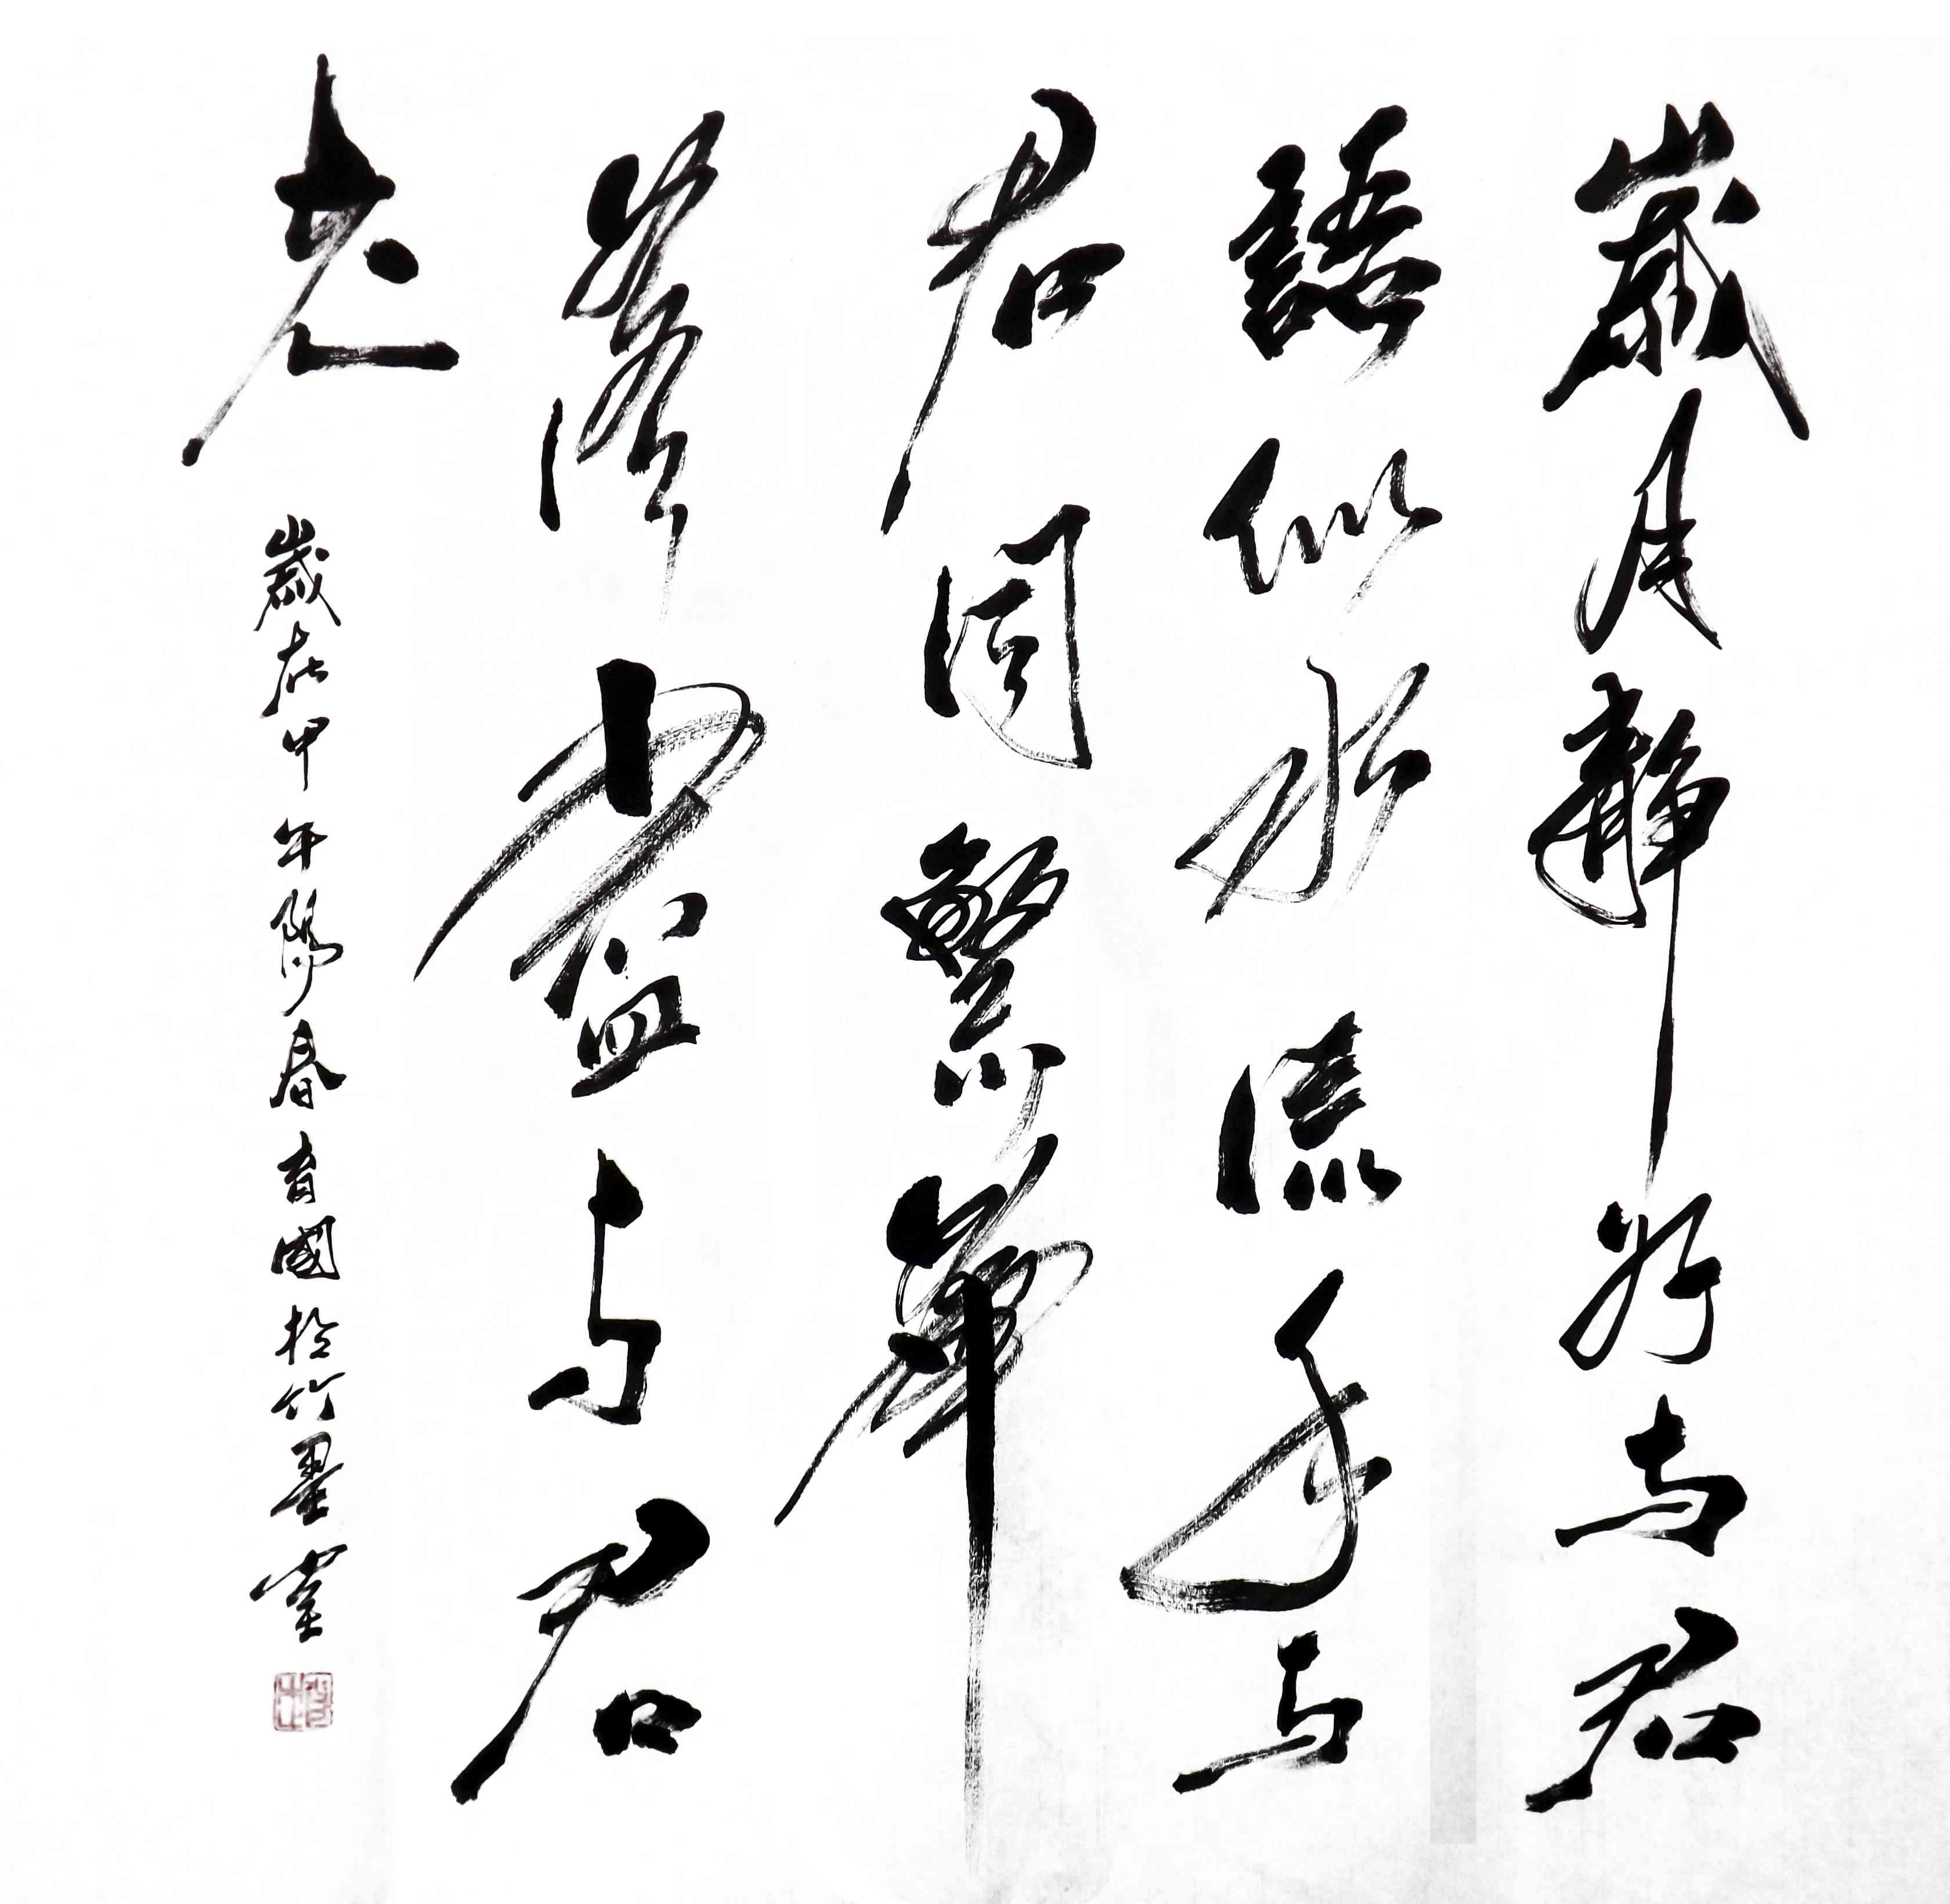 歲月靜好与君
語似水流年与
君同繁華
落盡与君
老
歲在甲午陽春育國於竹墨堂